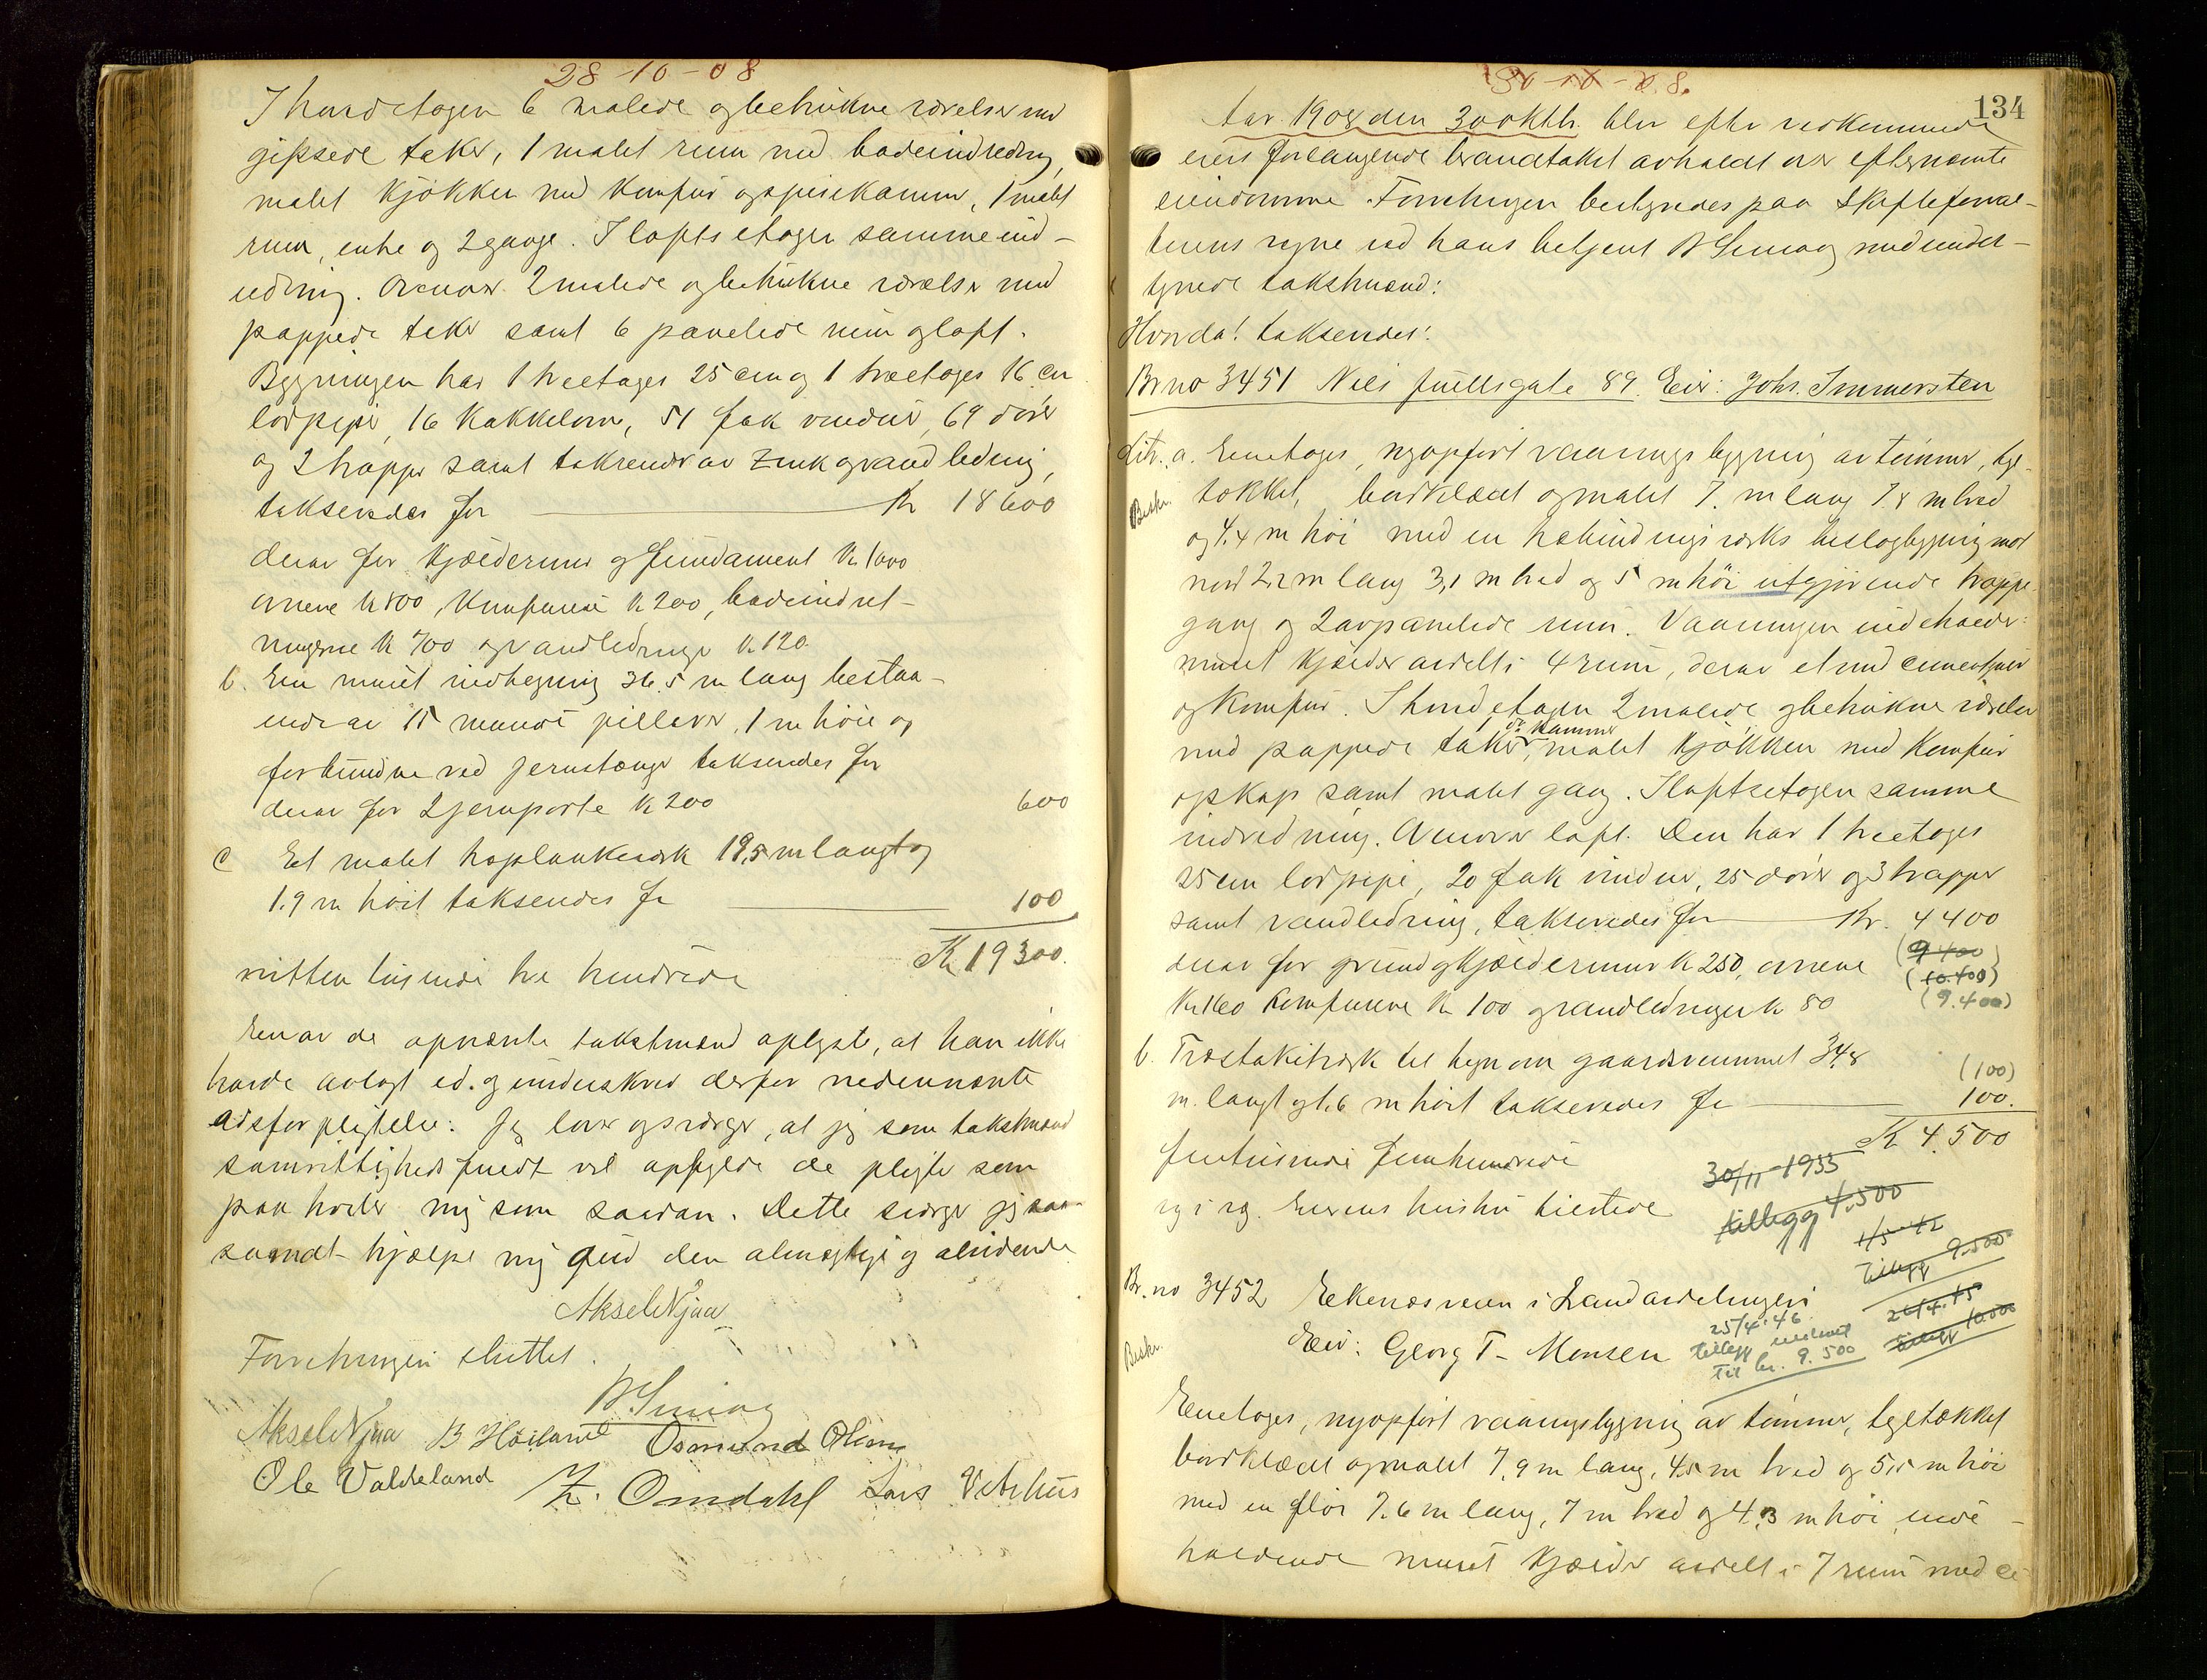 28-10-08
I hver etagen 6 malede og betrukne værelser med
gipsede taker, 1 malet rum med badeindredning,
malet kjøkken med komfur og spisekammer, 1 malet
rum, entre og 2 gange. I loftsetagen samme ind-
redning. Ovenover 2 malede og betrukne værelser med
pappede taker samt 6 panelede rum og loft.
Bygningen har 1 treetages 25 cm og 1 træetages 16 cm
lodpipe, 16 kakkelovne, 51 fak vinduer, 69 dører
og 2 trapper samt takrender av zink og vandledning,
takseredes for Kr 18600
derav for kjældermur og fundament Kr 1000
ovnene kr 800, komfurene k 200, badeindret-
ningerne k 700 og vandledninge k. 120.
b. En muret indhegning 36.5 m lang bestaa-
ende av 15 murede pillarer, 1 m høie og
forbundne ved jernstænger takseredes for
derav for 2 jernporte k 200 600
c Et malet træplankeverk 19,5 m langt og
1.9 m høit takseredes for 100
Kr 19300.
nitten tusinde tre hundrede
En av de opnævnte takstmænd oplyste, at han ikke
havde avlagt ed. og underskrev derfor nedennævnte
edsforpligtelse: Jeg lover og sværger, at jeg som takstmand
samvittighedsfuldt vil opfylde de pligter som
paa hviler mig som saadan. Dette sværger jeg saa
sandt hjælpe mig Gud den almægtige og alvidende
Aksel Njaa
Forretningen sluttet.
B. Simog
Aksel Njaa B Høiland Osmund Olsen
Ole Valdeland Z. Omdahl Lars Vetrhus
30-10-08.
134
Aar 1908 den 30 oktbr. blev efter vedkommende
eiers forlangende brandtakst avholdt over efternævnte
eiendomme. Forretningen bestyredes paa Skifteforval-
terens vegne ved hans betjent B Simog med under-
tegnede takstmænd:
Hvorda! takseredes:
Br no 3451 Nils Juellsgate 89. Eier: Johs. Immersten
Litr. a. Enetages, nyopført vaaningsbygning av tømmer, tegl-
Beskr. tækket, bordklædt og malet 7. m lang 7.8 m bred
og 4.4 m høi med en træbindingsverks beslagbygning mot
nord 2.2 m lang 3,1 m bred og 5 m høi utgjørende trappe-
gang og 2 avpanelede rum. Vaaningen indeholder:
muret kjælder avdelt i 4 rum, derav et med cementgulv
og komfur. I hver etagen 2 malede og betrukne værelser
1 do kammer
med pappede taker, malet kjøkken med komfur
og skap samt malet gang. I loftsetagen samme
indredning. Ovenover loft. Den har 1 treetages
25 cm lodpipe, 20 fak vinduer, 25 dører og 3 trapper
samt vandledning, takseredes for Kr. 4400
derav for grund og kjældermur k 250, ovnene (9400)
(10.400)
Kr 160 komfurene k 100 og vandledningen k 80 (9.400)
b. Træstakitverk til hegn om gaardsrummet 34,8
(100)
m. langt og 1.6 m høit takseredes for 100.
Kr 4.500
firetusinde femhundrede
30/11-1933
tillegg 4.500
1/5-42
Tillegg 9.500
Br. no 3452 Eekenæsveien i Landavdelingen
26/4.45
tillegg 10.500
25/4.46
tillegg nedsat
til kr. 9.500
Beskr. Eier: Georg T. Monsen
Enetages, nyopført vaaningsbygning av tømmer, tegltækket
bordklædt og malet 7,9 m lang, 4,5 m bred og 5,5 m høi
med en fløi 7.6 m lang, 7 m bred og 4.3 m høi inde-
holdende muret kjælder avdelt i 7 rum med ce